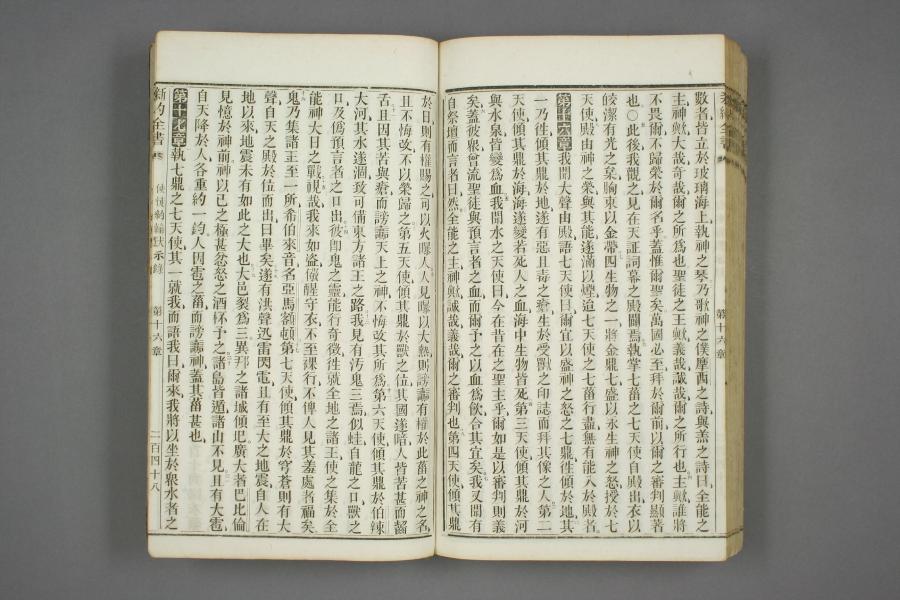 數者皆立於玻璃海上執神之琴乃歌神之僕摩西之詩與羔之詩曰全能之
主神歟大哉奇哉爾之所爲也聖徒之王歟義哉誠哉爾之所行也主歟誰將
不畏爾不歸榮於爾名乎蓋惟爾聖矣萬國必至拜於爾前以爾之審判顯著
也〇此後我觀之見在天証詞幕之殿闢焉執掌七菑之七天使自殿出衣以
皎潔有光之枲胸束以金帶四生物之一將金鼎七盛以永生神之怒授於七
天使殿由神之榮與其能遂滿以煙迨七天使之七菑行盡無有能入於殿者
第十六章我聞大聲由殿語七天使曰爾宜以盛神之怒之七鼎往傾於地其
一乃往傾其鼎於地遂有惡且毒之瘡生於受獸之印誌而拜其像之人第二
天使傾其鼎於海海遂變若死人之血海中生物皆死第三天使傾其鼎於河
與水泉皆變爲血我聞水之天使曰今在昔在之聖主乎爾如是以審判則義
矣蓋彼衆曾流聖徒與預言者之血而爾予之以血爲飲合其宜矣我又聞有
自祭壇而言者曰然全能之主神歟誠哉義哉爾之審判也第四天使傾其鼎
於日則有權賜之可以火曝人人見曝以大熱則謗讟有權於此菑之神之名
且不悔改不以榮歸之第五天使傾其鼎於獸之位其國遂暗人皆苦甚而齧
舌且因其苦與瘡而謗讟天上之神不悔改其所爲第六天使傾其鼎於伯辣
大河其水遂涸致可備東方諸王之路我見有汚鬼三焉似蛙自龍之口獸之
口及僞預言者之口出彼卽鬼之靈能行奇徵往就全地之諸王使之集於全
能神大日之戰視哉我來如盜儆醒守衣不至裸行不俾人見其羞處者福矣
鬼乃集諸王至一所希伯來音名亞馬額頓第七天使傾其鼎於穹蒼則有大
聲自天之殿於位而出曰畢矣遂有洪聲迅雷閃電且有至大之地震自人在
地以來地震未有如此之大也大邑裂爲三異邦之諸城傾圮廣大者巴比倫
見憶於神前神以己之極甚忿怒之酒杯予之諸島皆遁諸山不見且有大雹
自天降於人各重約一鈞人因雹之菑而謗讟神蓋其菑甚也
第十七章執七鼎之七天使其一就我而語我曰爾來我將以坐於衆水者之
新約全書 第十六章 二百四十八